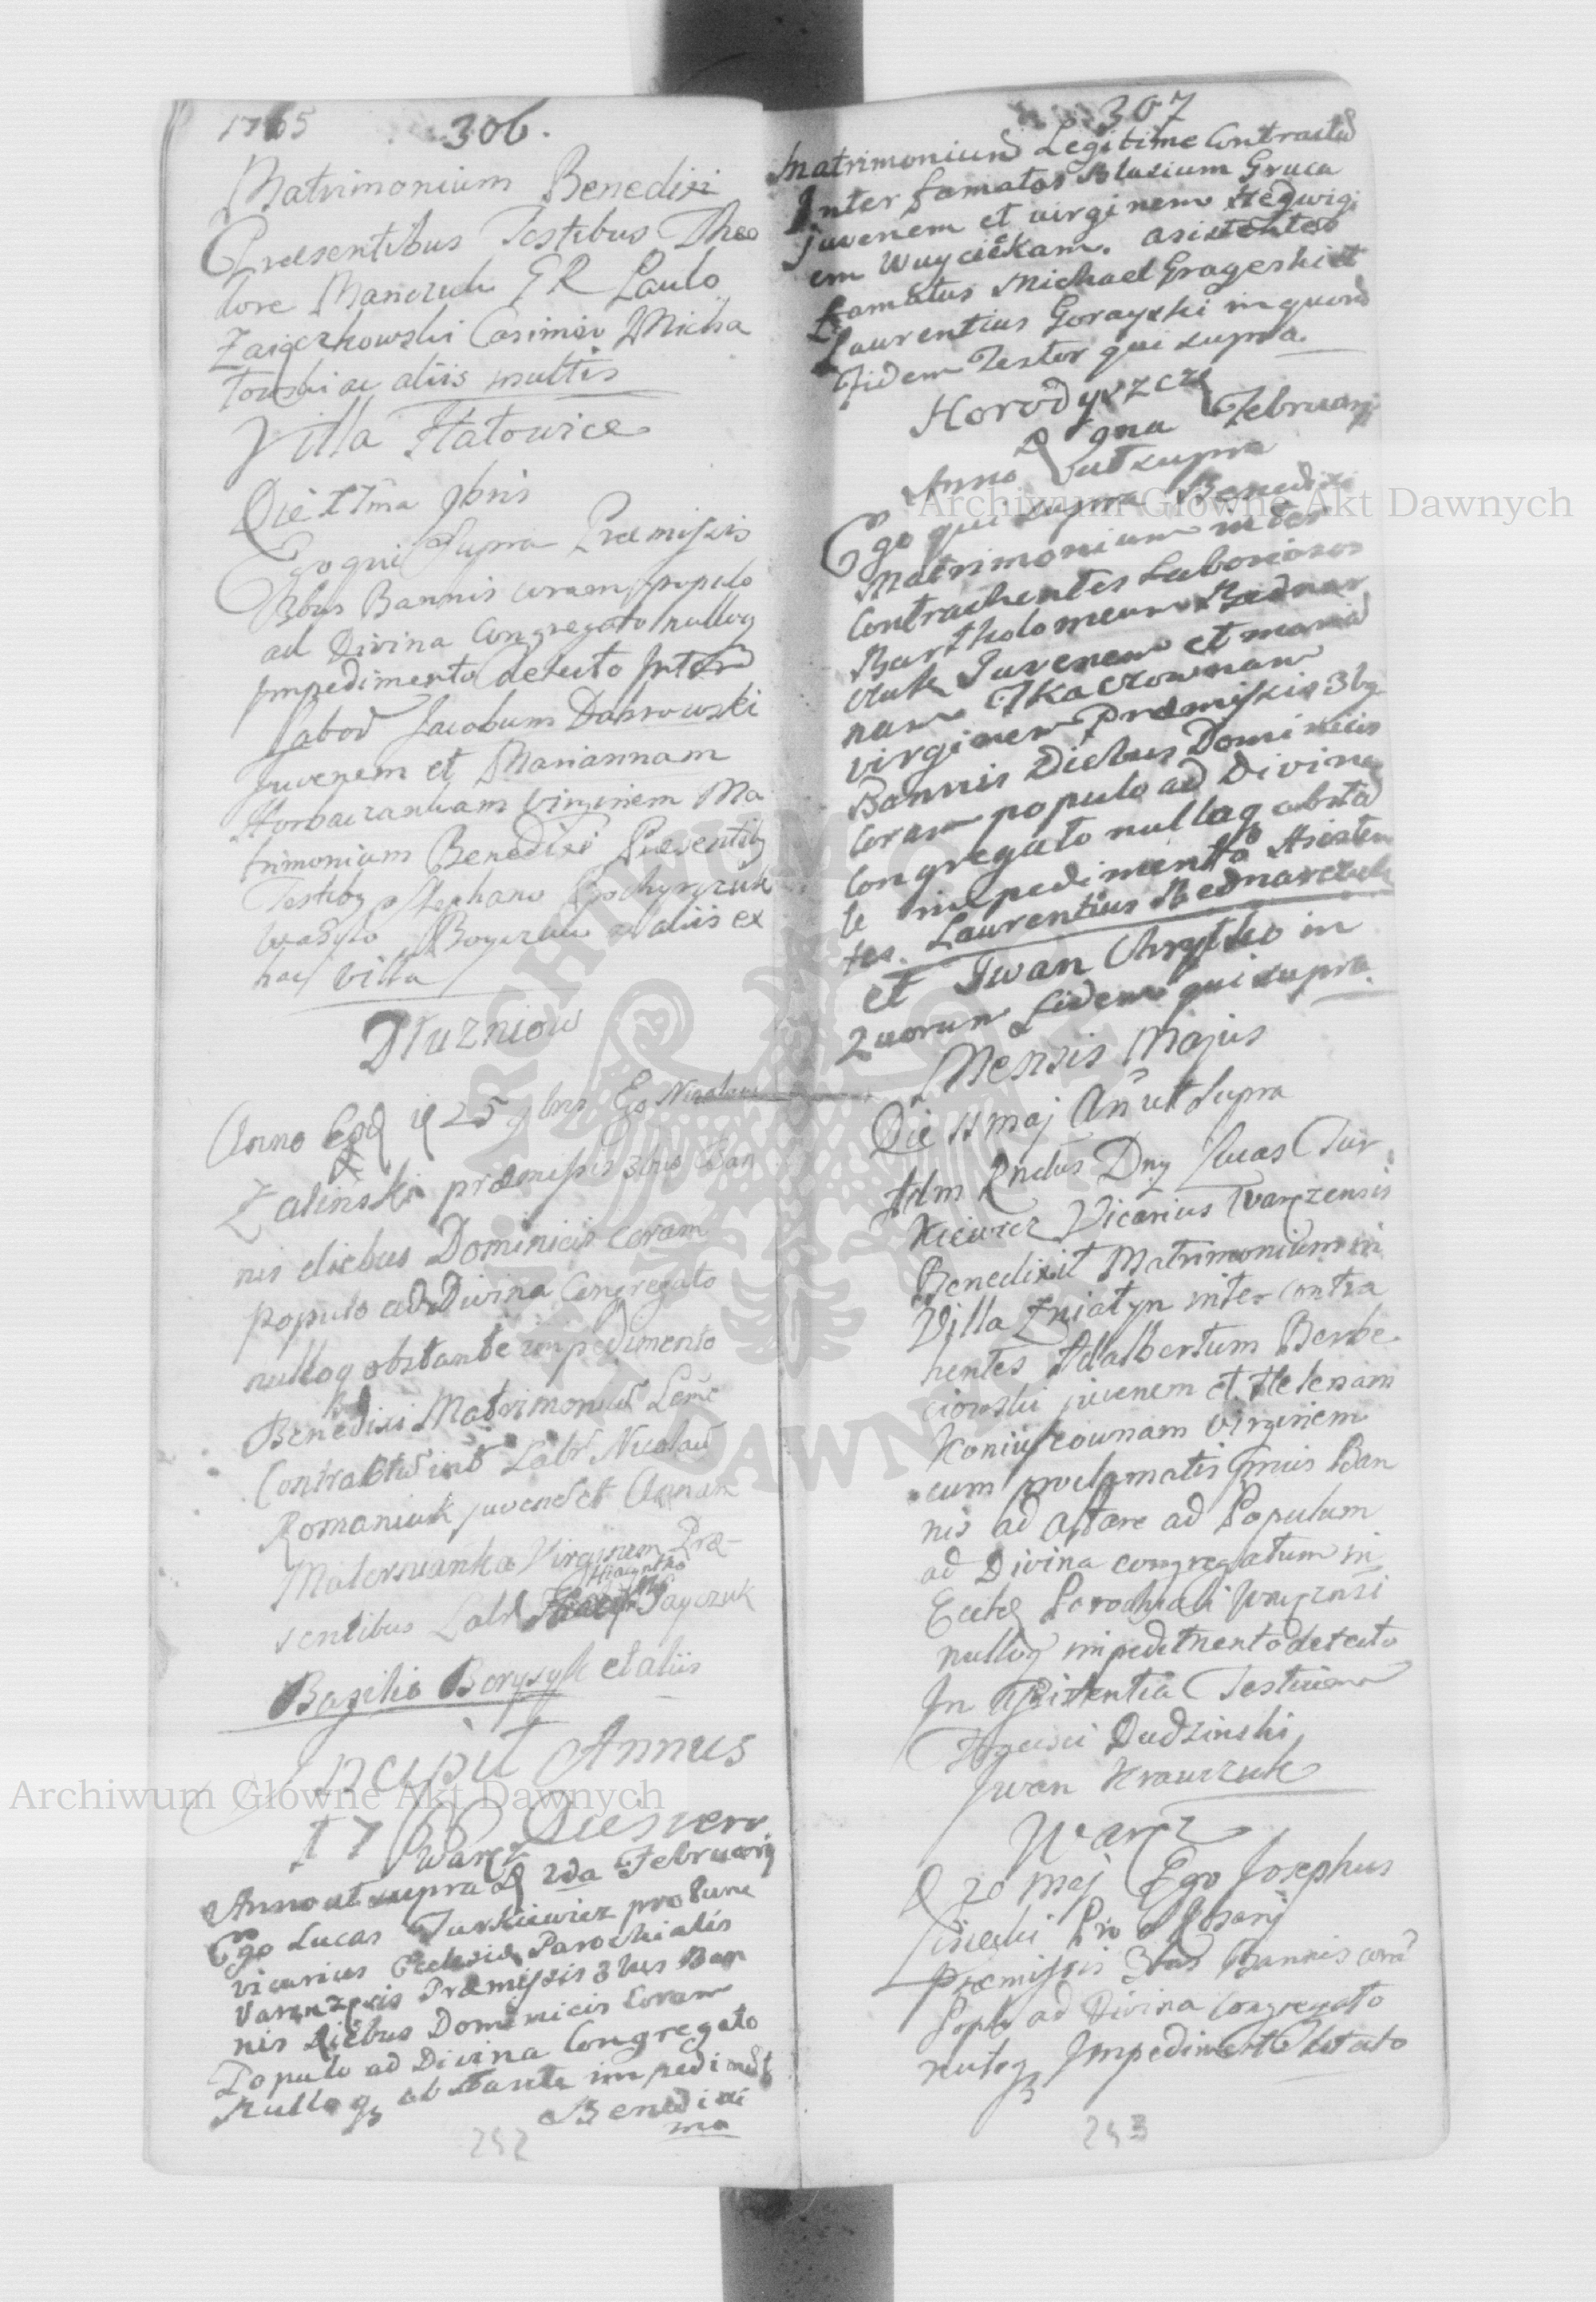 1765 306.
Matrimonium Benedixi
Praesentibus Testibus Theo
dore Manczuk Paulo
Zaigczkowski Casimiro Micha
towski ac aliis multis
Villa
Die
Ego qui Supra Praemissis
3bus Bannis coram populo
ad Divina Congregato nulloq
Impedimento detecto Inter
Labor Jacobum Dabrowski
Juvenem et Mariannam
Virginem Ma
trimonium Benedixi Praesentib
Testibq Stephano
aliis ex
hac villa
Dłużniow
Anno 25 9bris Ego Nicolaus
Zalinski praemissis 3bus Ban
nis diebus Dominicis coram
populo ad Divina Congregato
nulloq obstante impedimento
Benedixi Matrimoniu
Contractu Nicolau
Romaniuk juvene et Annam
Virginem Prae-
Hiacyntho
sentibus Payczuk
Basilio Borysyk et aliis
Incipit Annus
1766
Warez
Anno ut supra D 2da Februarij
Ego Lucas Turkiewicz pro tunc
vicarius Ecclesiae Parochialis
Praemissis 3bus Ban
nis diebus Dominicis Coram
Populo ad Divina Congregato
Nulloq obstante impedimet
Benedixi
ma
252
307
Matrimoniu Legitime Contractu
Inter famatos Blasium Gruca
juvenem et virginem Hedwigi
em Wuycickam. asistentes
famatus Michael et
Laurentius Gorayski in quoru
Fidem Testor qui supra.
Horodyszcze
D 9na Februarij
Anno ut supra
Ego qui supra Benedixi
Matrimonium inter
Contrachentes Laboriosos
Bartholomeum Bednar
czuk Juvenem et maria
nam Tkaczownam
virginem Praemissis 3bq
Bannis Diebus Dominicis
Coram populo ad Divina
Congregato nullaq obsta
te impedimento Asisten
tes. Laurentius Bednarczuk
et Iwan Chrytko in
Quorum fidem qui supra.
Mensis Majus
Die 11 maj An ut Supra
Adm Rndus Dnq Lucas Tur
kiewicz Vicarius Warezensis
Benedixit Matrimonium in
Villa Zniatyn inter contra
hentes Adalbertum Berbe
ciowski juvenem et Helenam
virginem
cum proclamatis Ban
nis ad Altare ad Populum
ad Divina congregatum in
Parochiali
nulloq impedimento detecto
In Assistentia Testium
Dudzinski
Iwan Krawczuk
Warez
D 20 Maj Ego Josephus
Lisiecki
praemissis 3bus Bannis cora
Poplo ad Divina Congregato
nuloq Impedimento
253
Archiwum Główne Akt Dawnych
Archiwum Główne Akt Dawnych
ARCHIWUM
AKT DAWNYCH